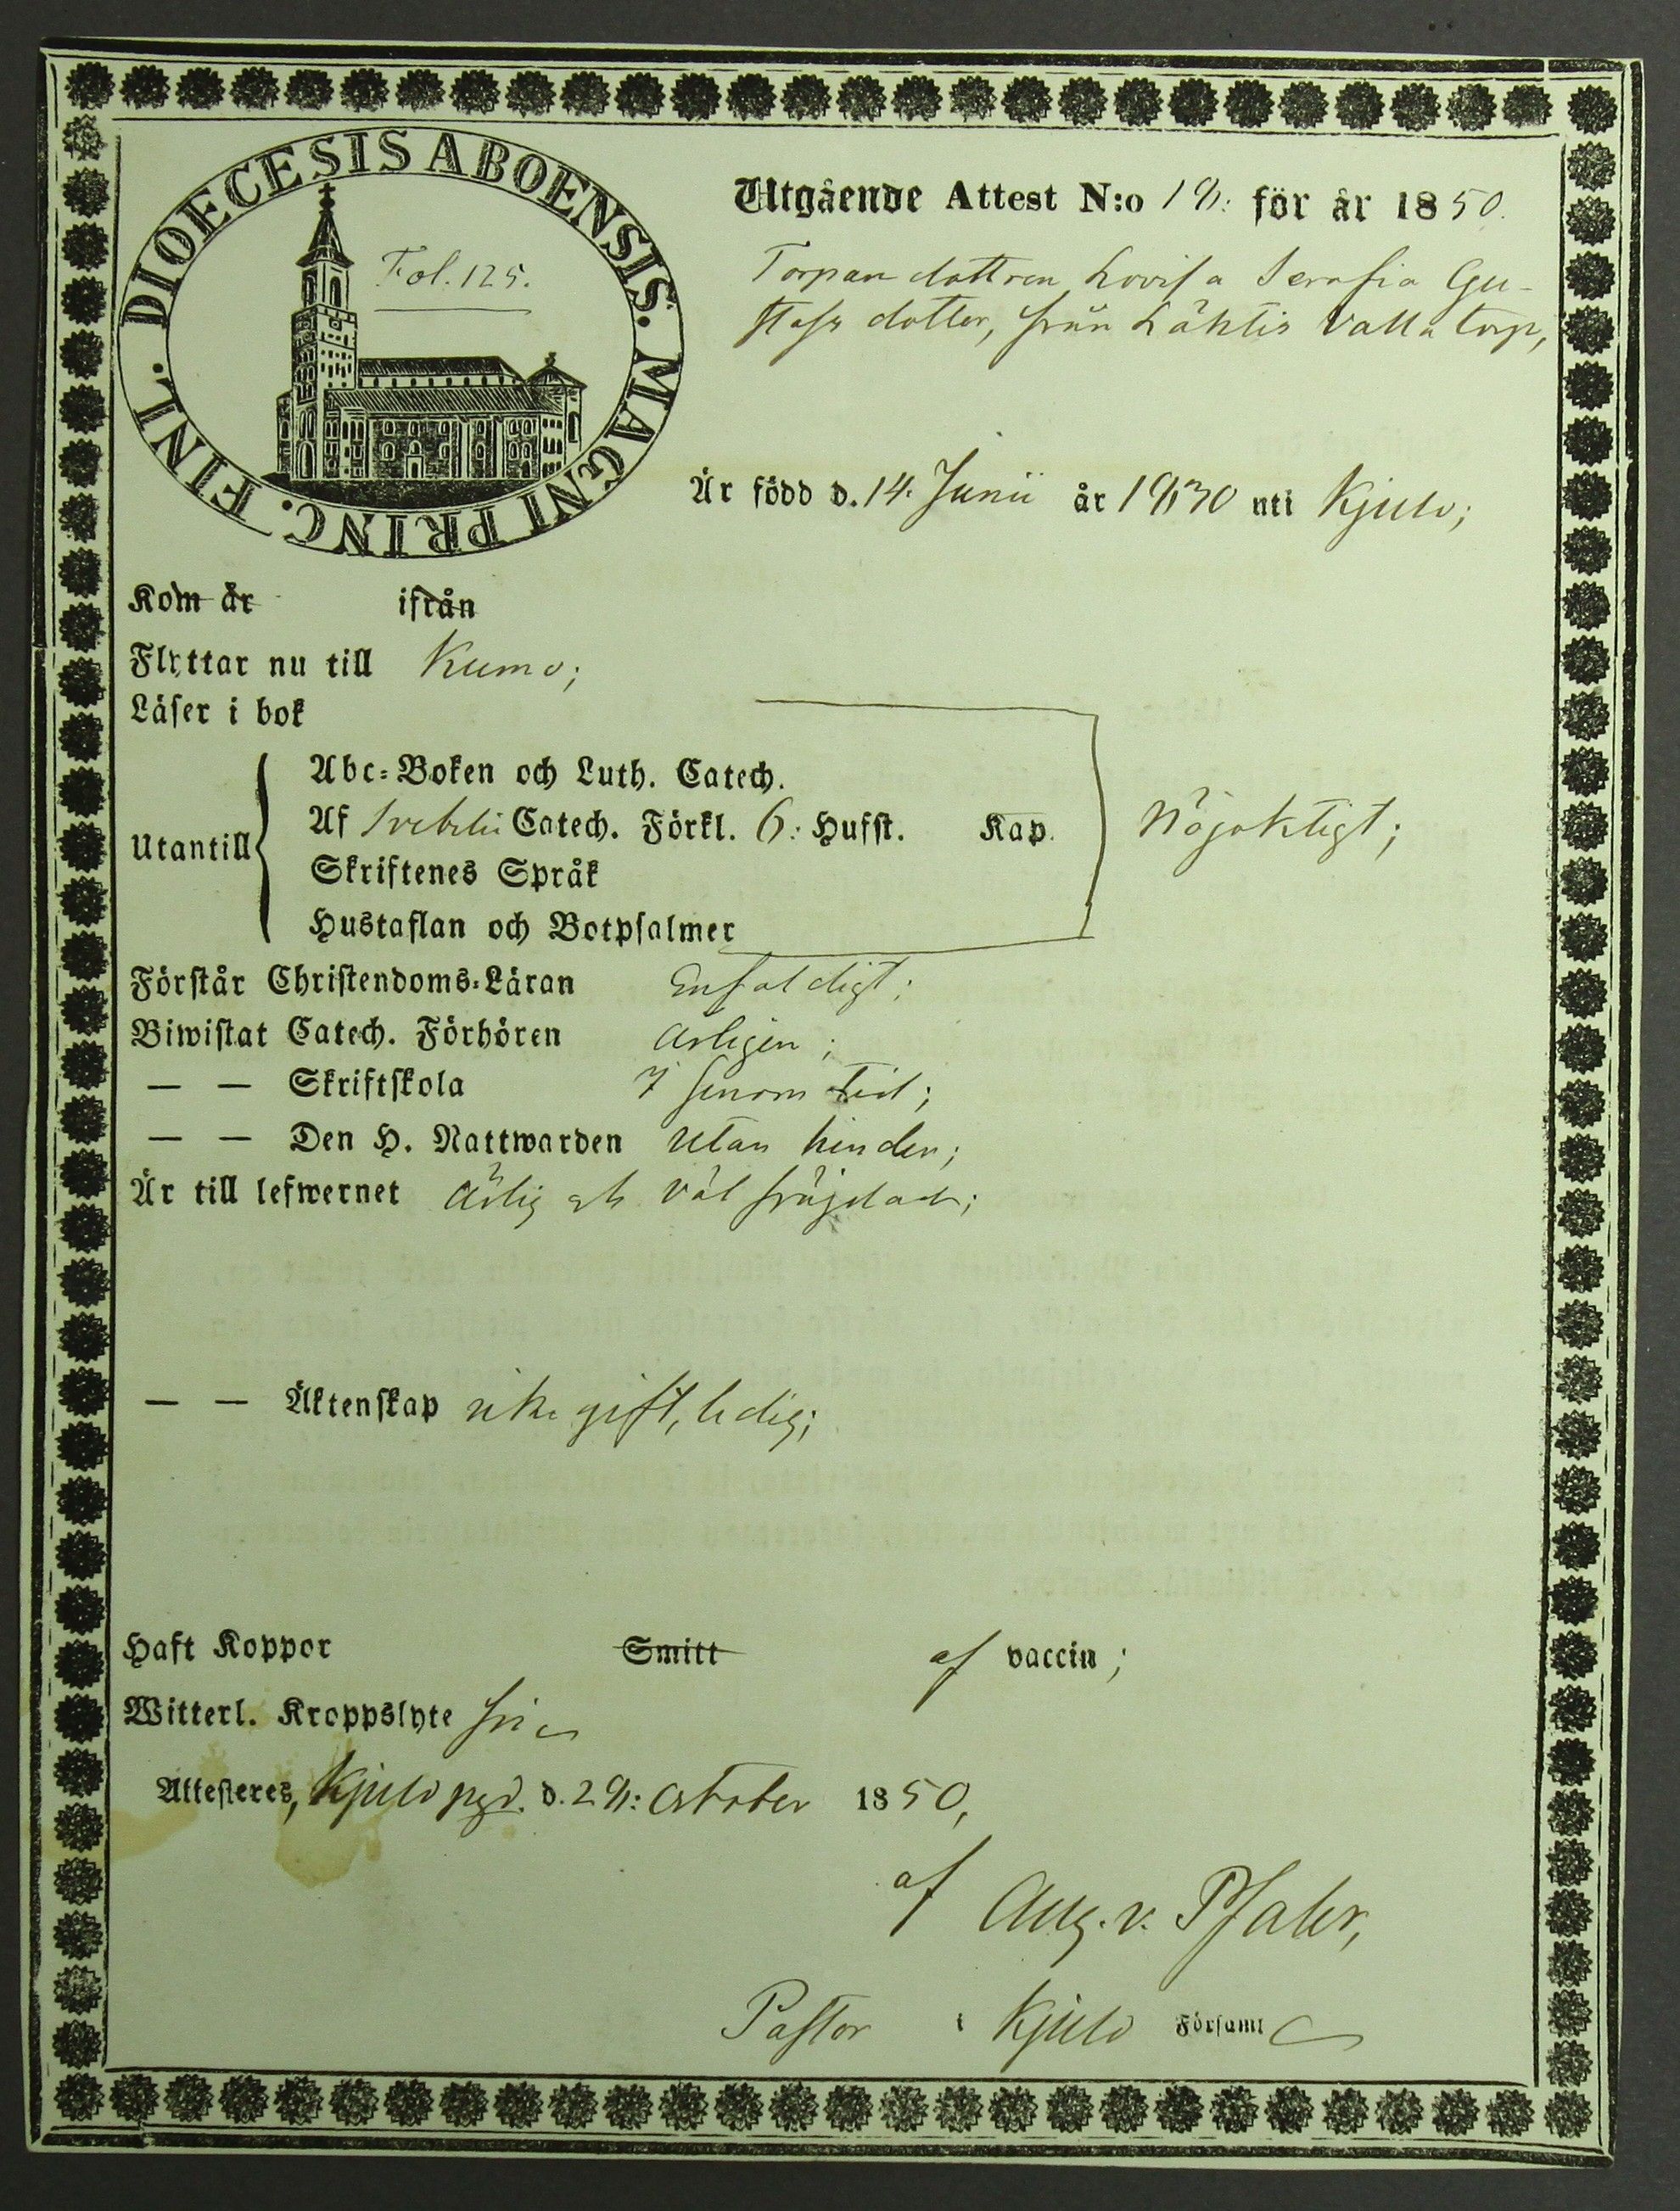 DIOECESIS ABOENSIS. MAGNI PRINC. FINL.
Fol. 125.
Utgående Attest N:o 18: för år 1850.
Torpare dottren Lovisa Serafia Gu-
stafs dotter, från Lähtis Valla torp,
Är född d. 14. Junii år 1830 uti Kjulo;
Kom år ifrån
Flyttar nu till Kumo;
Läser i bok
Utantill
Abc-Boken och Luth. Catech.
Af Svebelii Catech. Förkl. 6: Hufst. Kap.
Skriftenes Språk
Hustaflan och Botpsalmer
Nöjaktigt;
Förstår Christendoms-Läran Enfaldigt;
Biwistat Catech. Förhören årligen;
— — Skriftskola I sinom tid;
— — Den H. Nattwarden utan hinder;
Är till lefwernet ärlig och väl frägdad;
— — Äktenskap icke gift, ledig;
Haft Koppor Smitt af vaccin;
Witterl. Kroppslyte fri
Attesteres, Kjulo pgd. d. 28: October 1850,
af Aug. v. Pfaler,
Pastor i Kjulo Församl